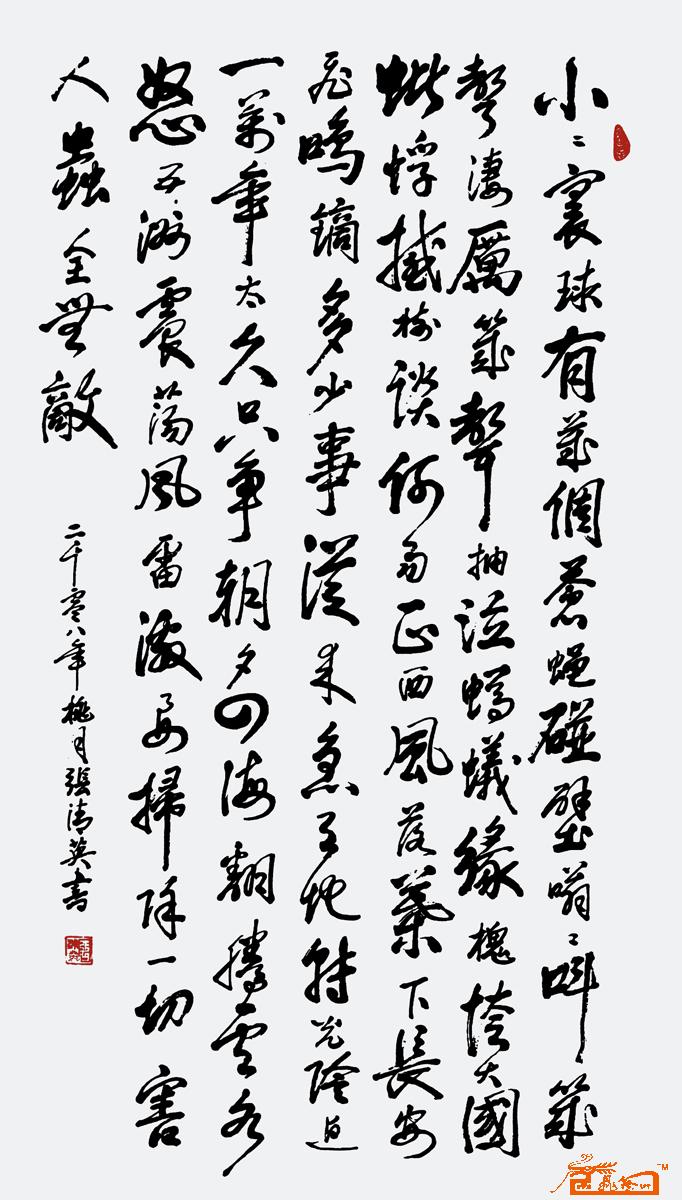 小〻寰球有幾個蒼蠅碰壁嗡〻叫幾
聲淒厲幾聲抽泣螞蟻緣槐誇大國
蚍蜉撼樹談何易正西風落葉下長安
飛鳴鏑多少事從來急天地轉光陰迫
一萬年太久只爭朝夕四海翻騰雲水
怒五洲震蕩風雷激要掃除一切害
人蟲全無敵
二千零八年桃月張清英書